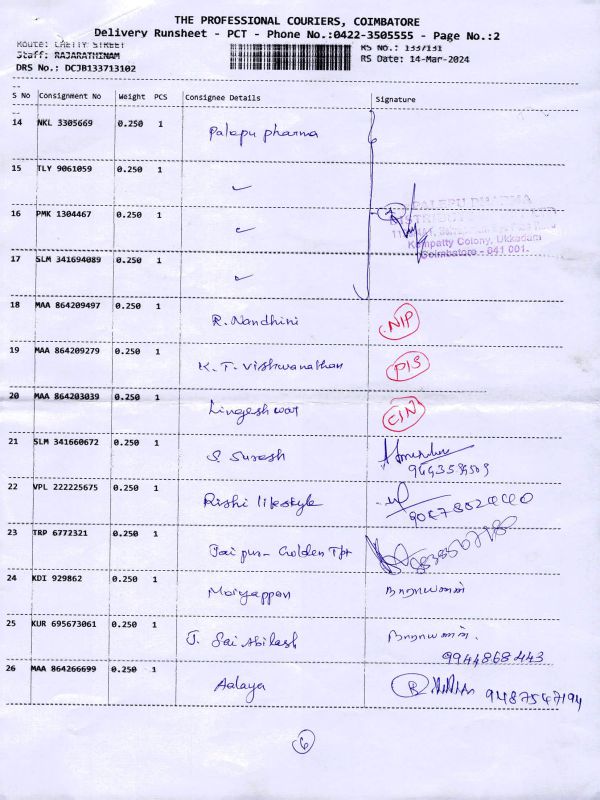 THE PROFESSIONAL COURIERS, COIMBATORE
Delivery Runsheet - PCT - Phone No.:0422-3505555 - Page No.:2
Route: CHETTY STREET RS No.: 1337131
Staff: RAJARATHINAM RS Date: 14-Mar-2024
DRS No.: DCJB133713102
S No Consignment No Weight PCS Consignee Details Signature
14 NKL 3305669 0.250 1 Palepu pharma
15 TLY 9061059 0.250 1
16 PMK 1304467 0.250 1
PALEPU PHARMA
Kempatty Colony, Ukkadam
Coimbatore - 641 001.
17 SLM 341694089 0.250 1
18 MAA 864209497 0.250 1 R. Nandhini NIP
19 MAA 864209279 0.250 1 K. T. Vishwanathan PIS
20 MAA 864203039 0.250 1 Lingeshwar CIN
21 SLM 341660672 0.250 1 S. Suresh
22 VPL 222225675 0.250 1 Rishi lifestyle
23 TRP 6772321 0.250 1 Jaipur Golden Tpt
24 KDI 929862 0.250 1 Meiyappan நாராயணன்
25 KUR 695673061 0.250 1 J. Sai Abilash நாராயணன்.
9944868443
26 MAA 864266699 0.250 1 Aalaya 9487547194
6